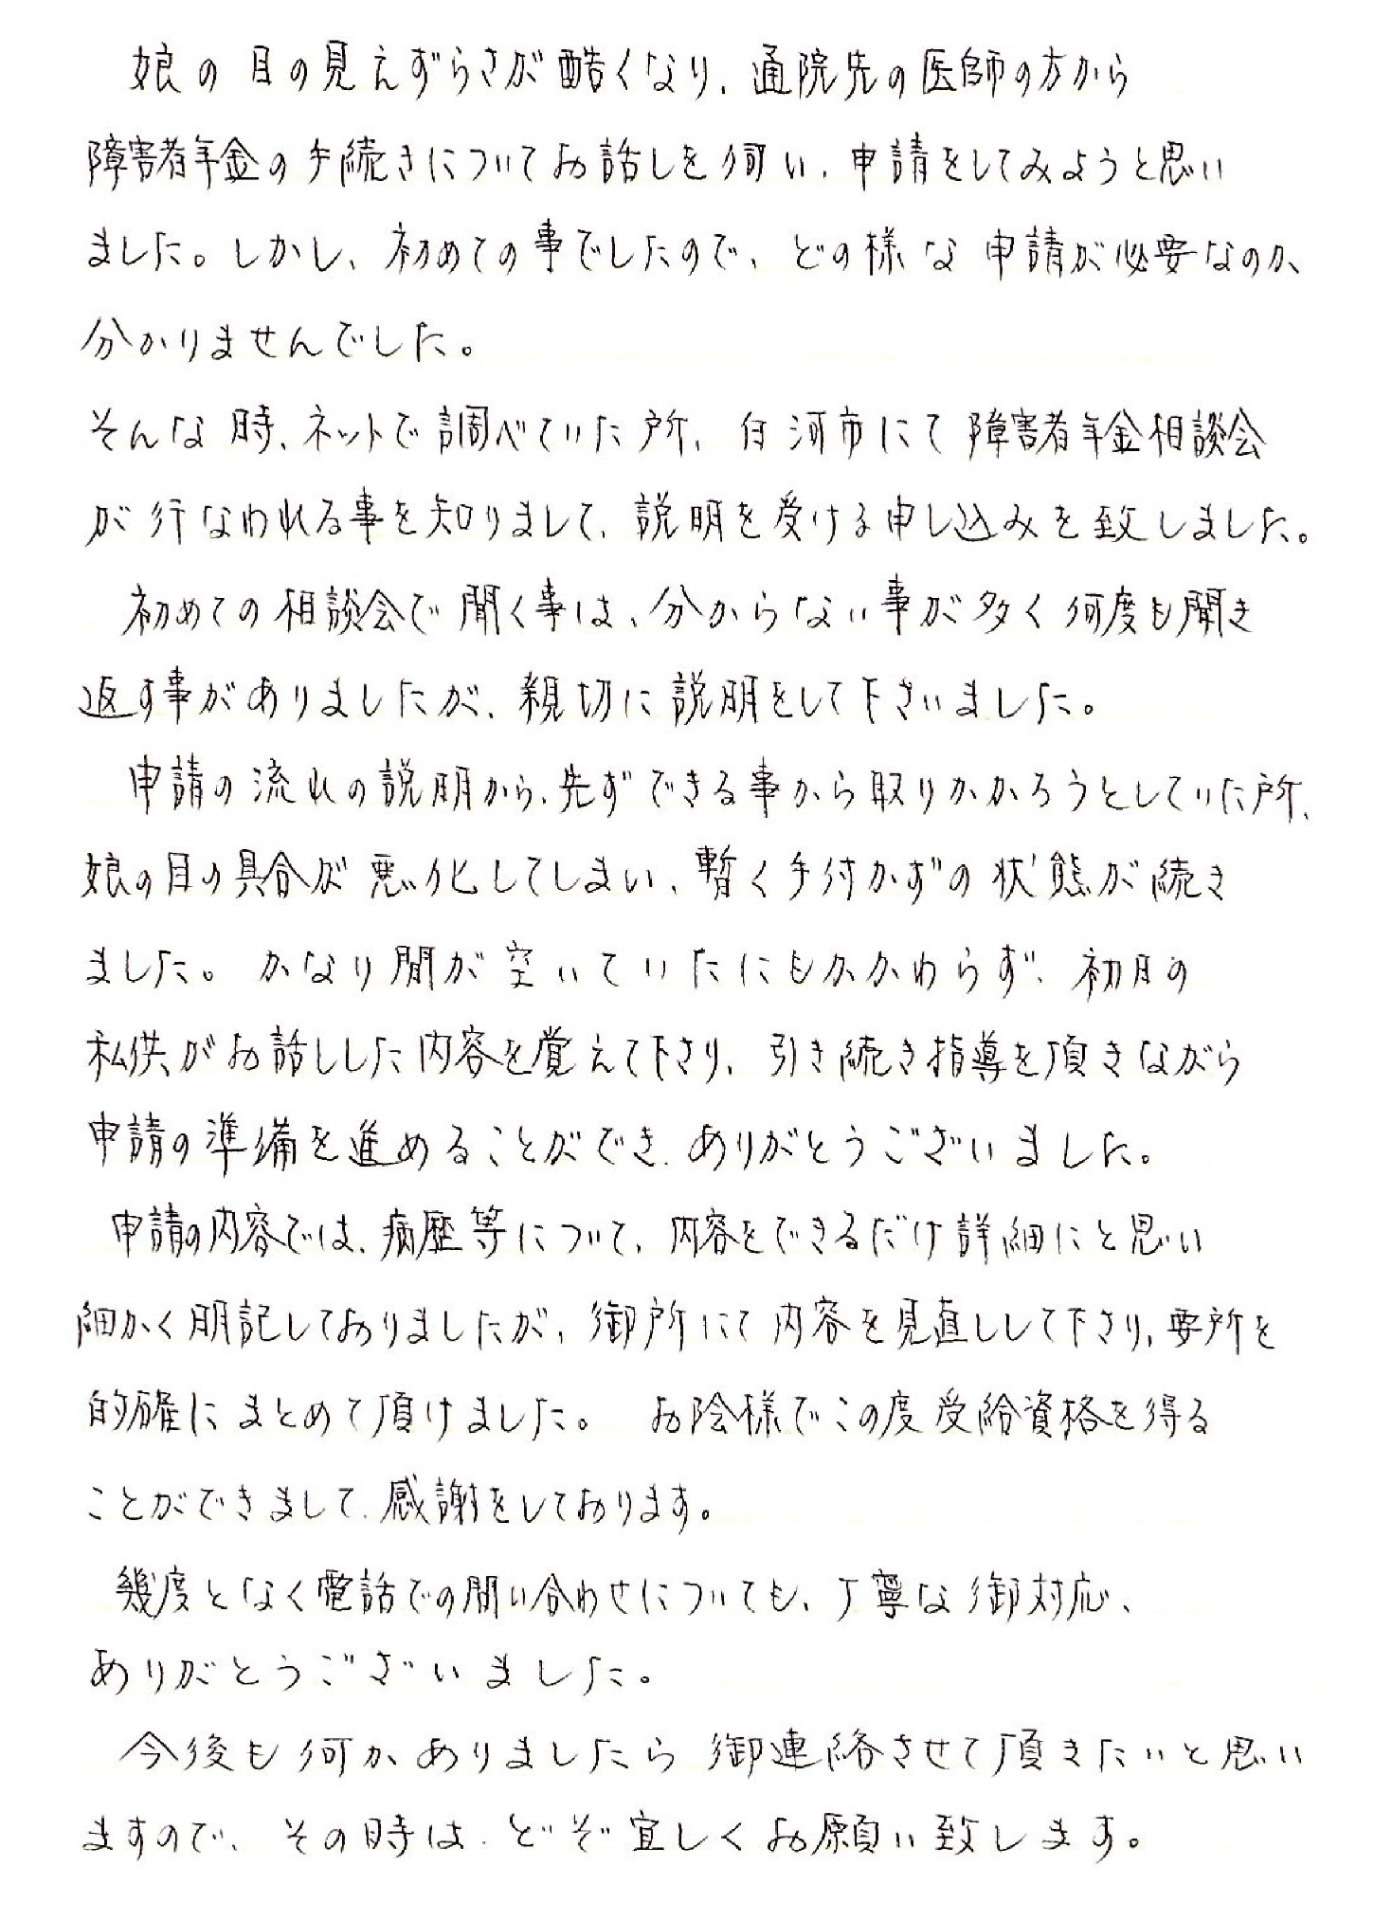 娘の目の見えずらさが酷くなり、通院先の医師の方から
障害者年金の手続きについてお話しを伺い、申請をしてみようと思い
ました。しかし、初めての事でしたので、どの様な申請が必要なのか、
分かりませんでした。
そんな時、ネットで調べていた所、白河市にて障害者年金相談会
が行なわれる事を知りまして、説明を受ける申し込みを致しました。
初めての相談会で聞く事は、分からない事が多く何度も聞き
返す事がありましたが、親切に説明をして下さいました。
申請の流れの説明から、先ずできる事から取りかかろうとしていた所、
娘の目の具合が悪化してしまい、暫く手付かずの状態が続き
ました。かなり間が空いていたにもかかわらず、初日の
私供がお話しした内容を覚えて下さり、引き続き指導を頂きながら
申請の準備を進めることができ、ありがとうございました。
申請の内容では、病歴等について、内容をできるだけ詳細にと思い
細かく明記しておりましたが、御所にて内容を見直しして下さり、要所を
的確にまとめて頂けました。お陰様でこの度受給資格を得る
ことができまして、感謝をしております。
幾度となく電話での問い合わせについても、丁寧な御対応、
ありがとうございました。
今後も何かありましたら御連絡させて頂きたいと思い
ますので、その時は、どぞ宜しくお願い致します。